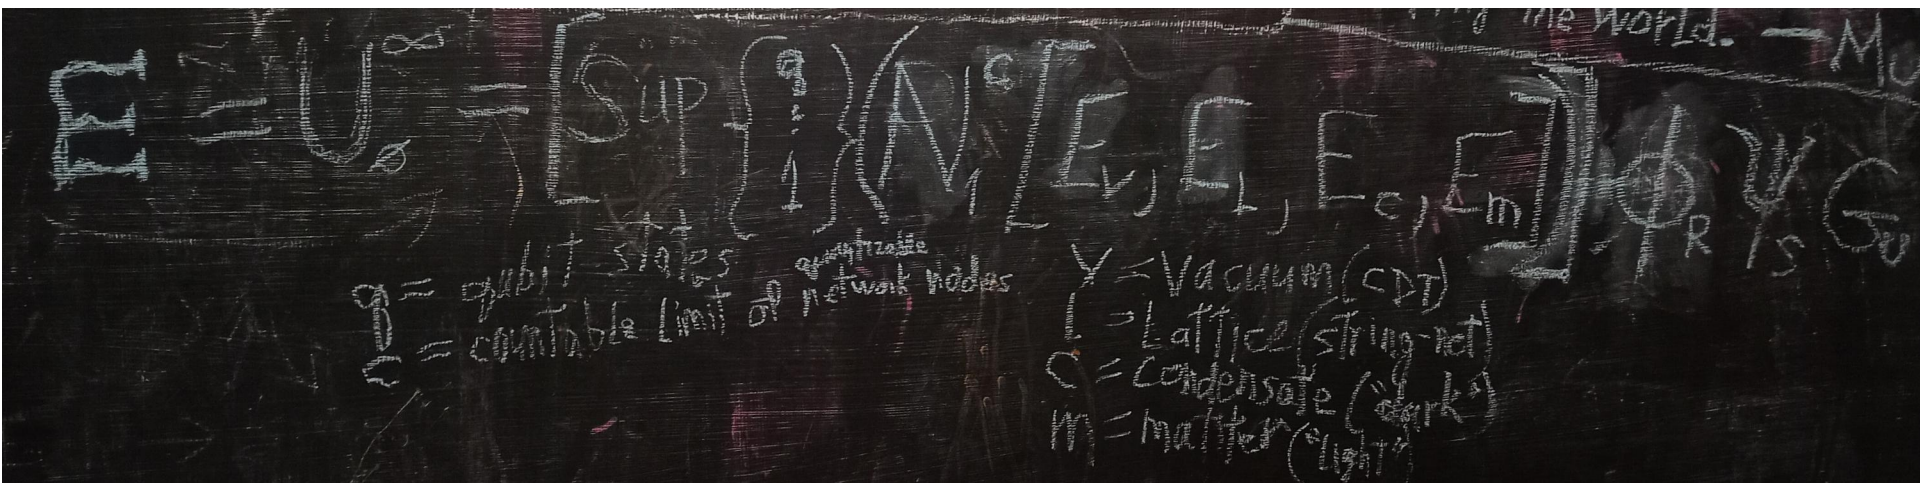 the World. — Mu
E = U∞ø = [Sup {q ⋮ 1} (N, c [Ev, EL, Ec, Em]] · ϕR ΨS Gu
q = qubit states
c = countable Limit of quantizable network nodes
V = Vacuum (CDT)
l = Lattice (string-net)
c = Condensate ("dark")
m = matter ("light")